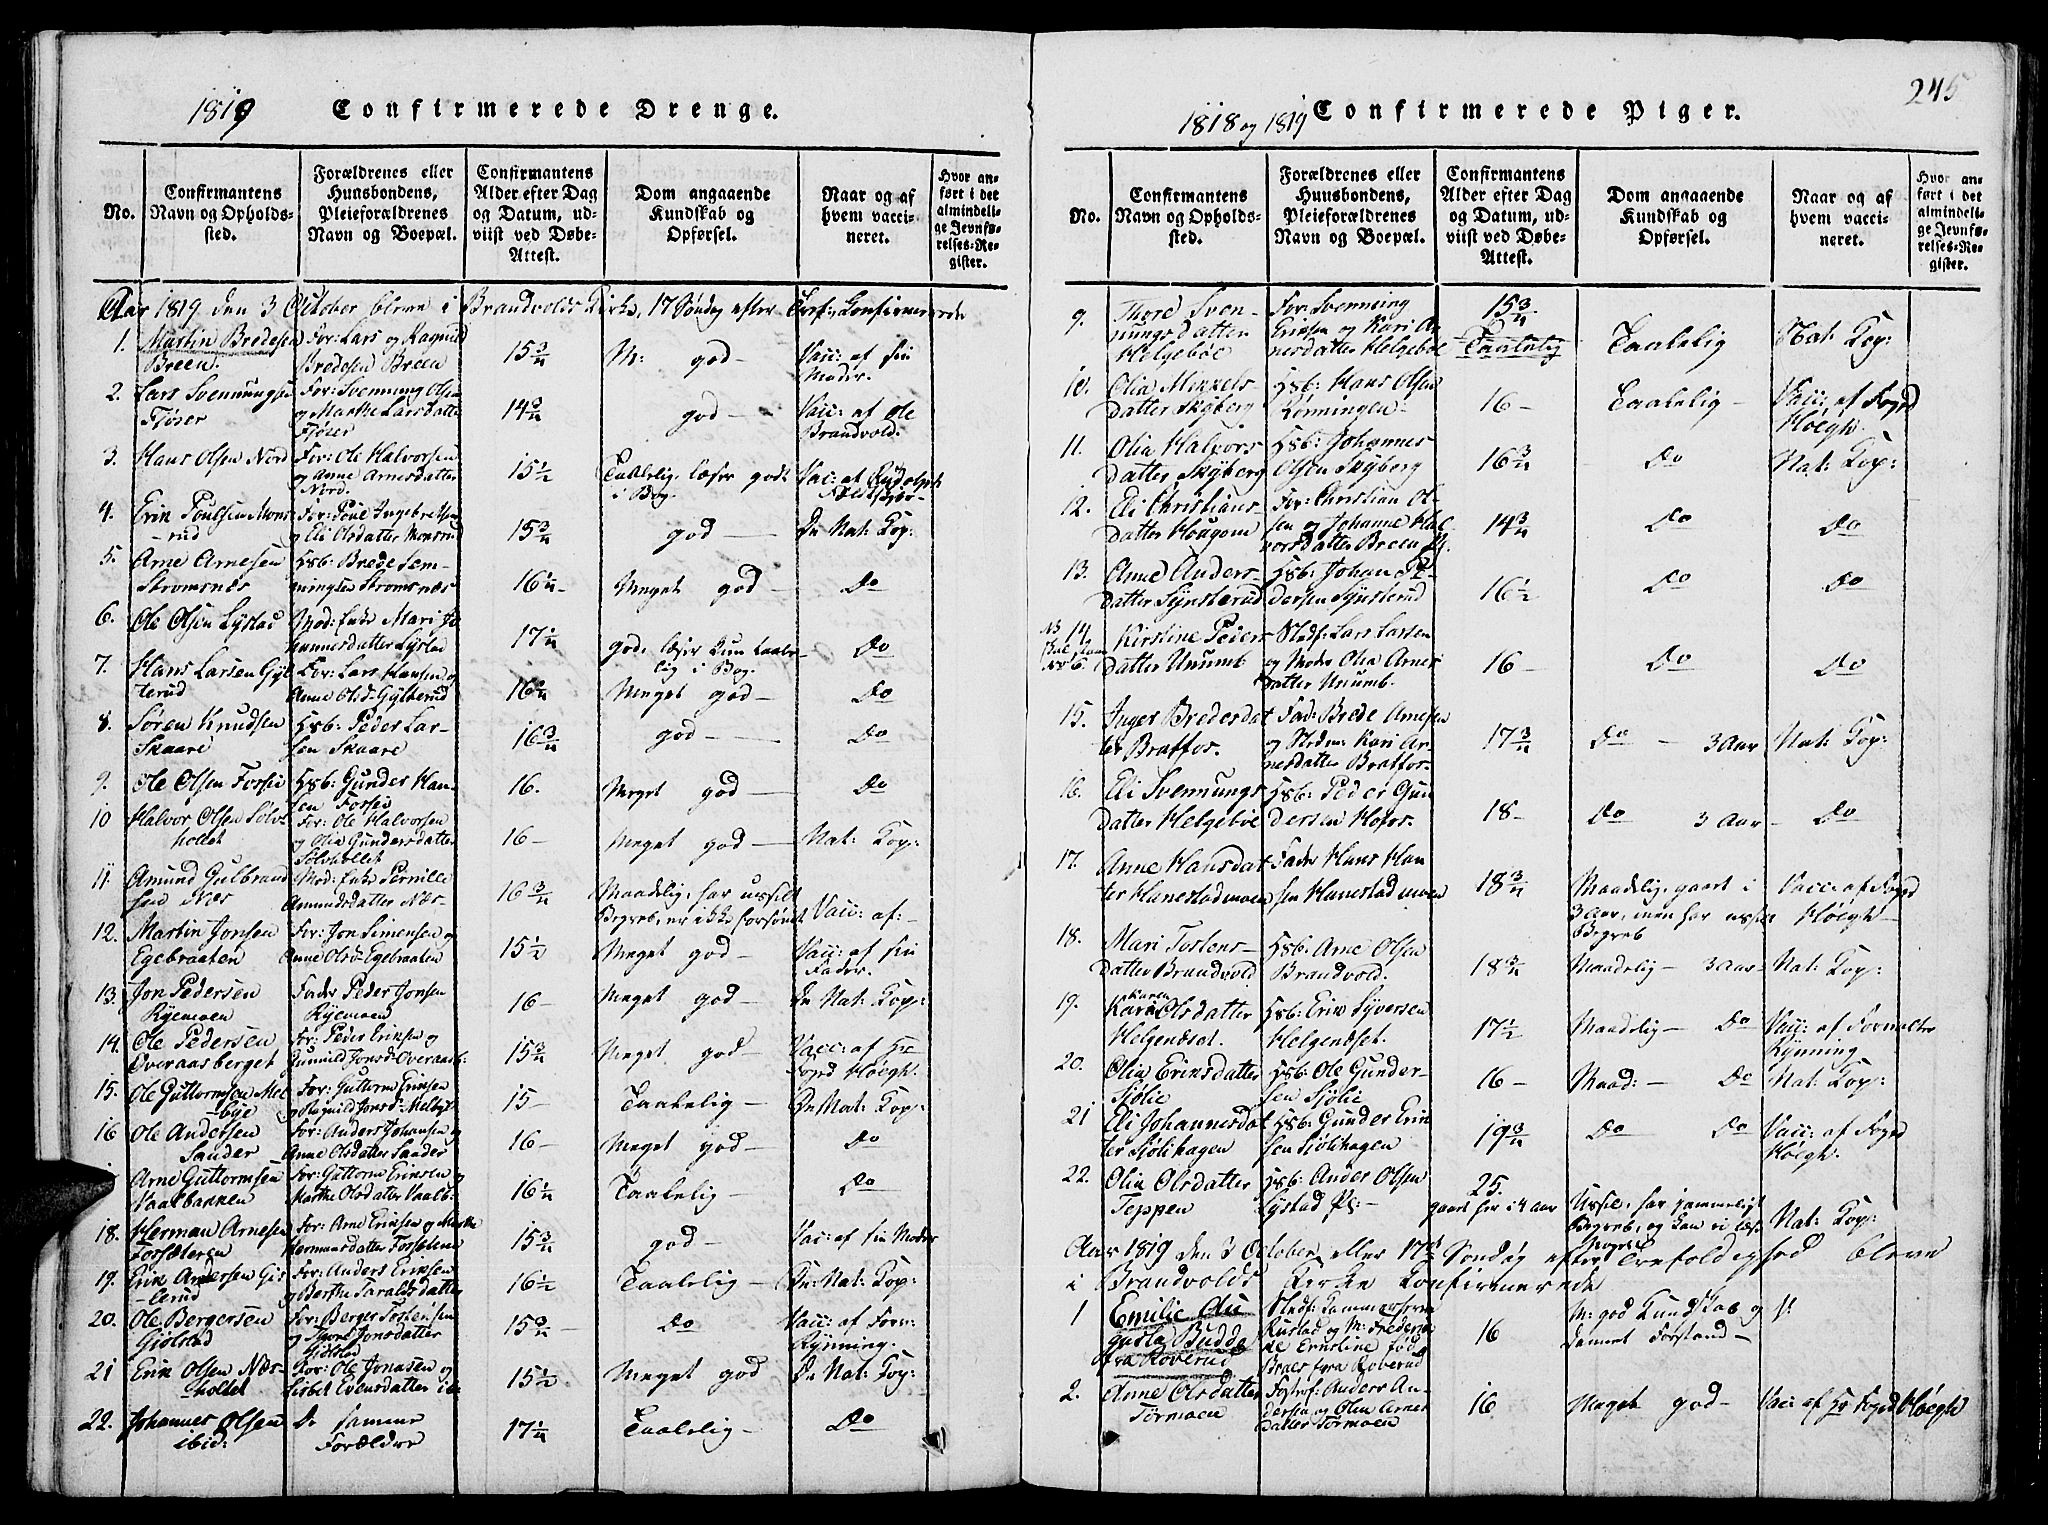 1819 Confirmerede Drenge.
No.
Confirmantens
Navn og Opholds-
sted.
Forældrenes eller
Huusbondens,
Pleieforældrenes
Navn og Boepæl.
Confirmantens
Alder efter Dag
og Datum, ud-
viist ved Døbe-
Attest.
Dom angaaende
Kundskab og
Opførsel.
Naar og af
hvem vacci-
neret.
Hvor an-
ført i det
almindeli-
ge Jevnfø-
relses-Re-
gister.
Aar 1819 den 3 October bleve i Brandvolds Kirke, 17 Søndag efter Tref: Confirmerede
1. Martin Bredesen
Breen.
For: Lars og Ragnild
Bredesen Breen
15 3/4
M: god
Vacc: af sin
Moder.
2. Lars Svennungsen
Fjøser
For: Svennung Olsen
og Marthe Larsdatter
Fjøser
14 3/4
god
Vacc: af Ole
Brandvold.
3. Hans Olsen Nord
For: Ole Halvorsen
og Anne Arnesdatter
Nord.
15 1/2
Taalelig, læser godt
i Bog.
Vac: af
4. Erik Poulsen Mons-
rud
For: Poul Ingebretsen
og Eli Olsdatter Monsrud
15 3/4
god
De Nat: Kop:
5. Arne Arnesen
Stromsnæs
Hsb: Brede Sem-
mingsen Stromsnæs
16 1/4
Meget god
Do
6. Ole Olsen Lystad
Mod: Enke Mari Jo
hannesdatter Lystad
17 1/4
god, læser kun taale-
lig i Bog.
Do
7. Hans Larsen Gyl
terud
For: Lars Hansen og
Anne Olsd: Gylterud
16 3/4
Meget god
Do
8. Søren Knudsen
Skaare
Hsb: Peder Lar-
sen Skaare
16 3/4
god
Do
9. Ole Olsen Forsei
Hsb: Gunder Han-
sen Forsei
16.
Meget god
Do
10 Halvor Olsen Solv-
hollet
For: Ole Halvorsen
og Olia Gundersdatter
Solvhollet
16
Meget god
Nat: Kop:
11. Amund Gulbrand
sen Næs
Mod: Enke Pernille
Amundsdatter Næs
16 3/4
Maadelig, har usselt
Begreb, er ikke forsømt
Vacc: af:
12. Martin Jonsen
Egebraaten
For: Jon Simensen og
Anne Olsd: Egebraaten
15 1/2
Meget god
Vacc: af sin
Fader.
13. Jon Pedersen
Ryemoen
Fader Peder Jonsen
Ryemoen
16
Meget god
De Nat: Kop:
14. Ole Pedersen
Overaasberget
For: Peder Eriksen og
Gunnild Jonsd: Overaasb:
15 3/4
Meget god
Vacc: af Hr
Fogd Høegh.
15. Ole Guttormsen Mel
bye
For: Guttorm Eriksen
og Ragnild Jonsd: Melbye
15
Taalelig
De Nat: Kop:
16 Ole Andersen
Sander
For: Anders Johansen og
Anne Olsdatter Sander
16
Meget god
Do
Arne Guttormsen
Vaalbakken
For: Guttorm Eriksen og
Marthe Olsdatter Vaalb:
16 1/4
Taalelig
Do
18. Herman Arnesen
Forsæteren
For: Arne Eriksen og Marthe
Hermansdatter Forsæteren
15 3/4
god
Vac: af sin Moder
19. Erik Andersen Gis
lerud
For: Anders Eriksen
og Berthe Taraldsdatter
16 1/2
Taalelig
De Nat: Kop:
20. Ole Bergersen
Gjølstad
For: Berger Torstensen
og Thore Jonsdatter
Gjølstad
15 3/4
Do
Vacc: af Form:
Rynning.
21 Erik Olsen Næs-
holtet
For: Ole Jonasen og
Lisbet Evensdatter ib:
15 1/2
Meget god
De Nat: Kop:
22. Johannes Olsen
ibid:
De samme
Forældre
17 1/4
Taalelig
Do
245
1818 og 1819 Confirmerede Piger.
No.
Confirmantens
Navn og Opholds-
sted.
Forældrenes eller
Huusbondens,
Pleieforældrenes
Navn og Boepæl.
Confirmantens
Alder efter Dag
og Datum, ud-
viist ved Døbe-
Attest.
Dom angaaende
Kundskab og
Opførsel.
Naar og af
hvem vacci-
neret.
Hvor an-
ført i det
almindeli-
ge Jevnfø-
relses-Re-
gister.
9. Thore Sven-
nungsdatter
Helgeboe
For: Svenning
Eriksen og Kari Ar-
nesdatter Helgeboe
15 3/4
Taalelig
Taalelig
Nat: Kop:
10. Olia Mikkels
datter Skyberg
Hsb: Hans Olsen
Rønningen
16
Taalelig
Vacc: af Fogd
Høegh.
11. Olia Halvors
datter Skyberg
Hsb: Johannes
Olsen Skyberg
16 3/4
Do
Nat: Kop:
12. Eli Christians
datter Hougom
For: Christian Ol-
sen og Johanne Hal
vorsdatter Breen Pl.
14 3/4
Do
Do
13. Anne Anders-
datter Synsterud
Hsb: Johan Pe-
dersen Synsterud
16 1/2
Do
Do
14. Kirstine Peders
datter Unumb
Stedf: Lars Larsen
og Moder Olia Arnes
datter Unumb.
16
Do
Do
15. Inger Bredesdat
ter Braffos.
Fad: Brede Arnesen
og Stedm: Kari Ar-
nesdatter Braffos
17 3/4
Do 3 Aar
Nat: Kop:
16. Eli Svennungs
datter Helgeboe
Hsb: Peder Gun
dersen Hofos.
18
Do 3 Aar
Do
17. Anne Hansdat
ter Hanestadmoen
Fader Hans Han
sen Hanestadmoen
18 3/4
Maadelig, gaaet i
3 Aar, men har usselt
Begreb
Vacc: af Fogd
Høegh
18. Mari Torstens-
datter Brandvold
Hsb: Arne Olsen
Brandvold.
18 3/4
Maadelig 3 Aar
Nat: Kop:
19. Karen
Kari Olsdatter
Helgenæset.
Hsb: Erik Syversen
Helgenæset.
17 1/2
Maadelig Do
Vacc: af
Rynning
20. Olia Eriksdatter
Sjølie
Hsb: Ole Gunder-
sen Sjølie
16
Maad: Do
Nat: Kop:
21 Eli Johannesdat
ter Sjølihagen
Hsb: Gunder Erik
sen Sjølihagen
19 3/4
Do Do
Vacc: af Fogd
Høegh.
22. Olia Olsdatter
Teppen
Hsb: Anders Olsen
Lystad Pl:
25.
gaaet her i 4 Aar
Ussel, har jammerligt
Begreb, og kan ei læse
Nat: Kop:
Aar 1819 den 3 October eller 17de Søndag efter Trefoldighed bleve
i Brandvolds Kirke Confirmerede
1 Emilie Au
gusta Budde
fra Roverud
Stedf: Kammerherre
Rustad og M: Frederik
ke Ernstine fød
fra Roverud
16
M: god Kundskab og
dannet Forstand
2. Anne Olsdatter
Tørmoen
Fostf: Anders An-
dersen og Olia Arnes
datter Tørmoen
16
Meget god
Vacc af Hr Fogd Høegh